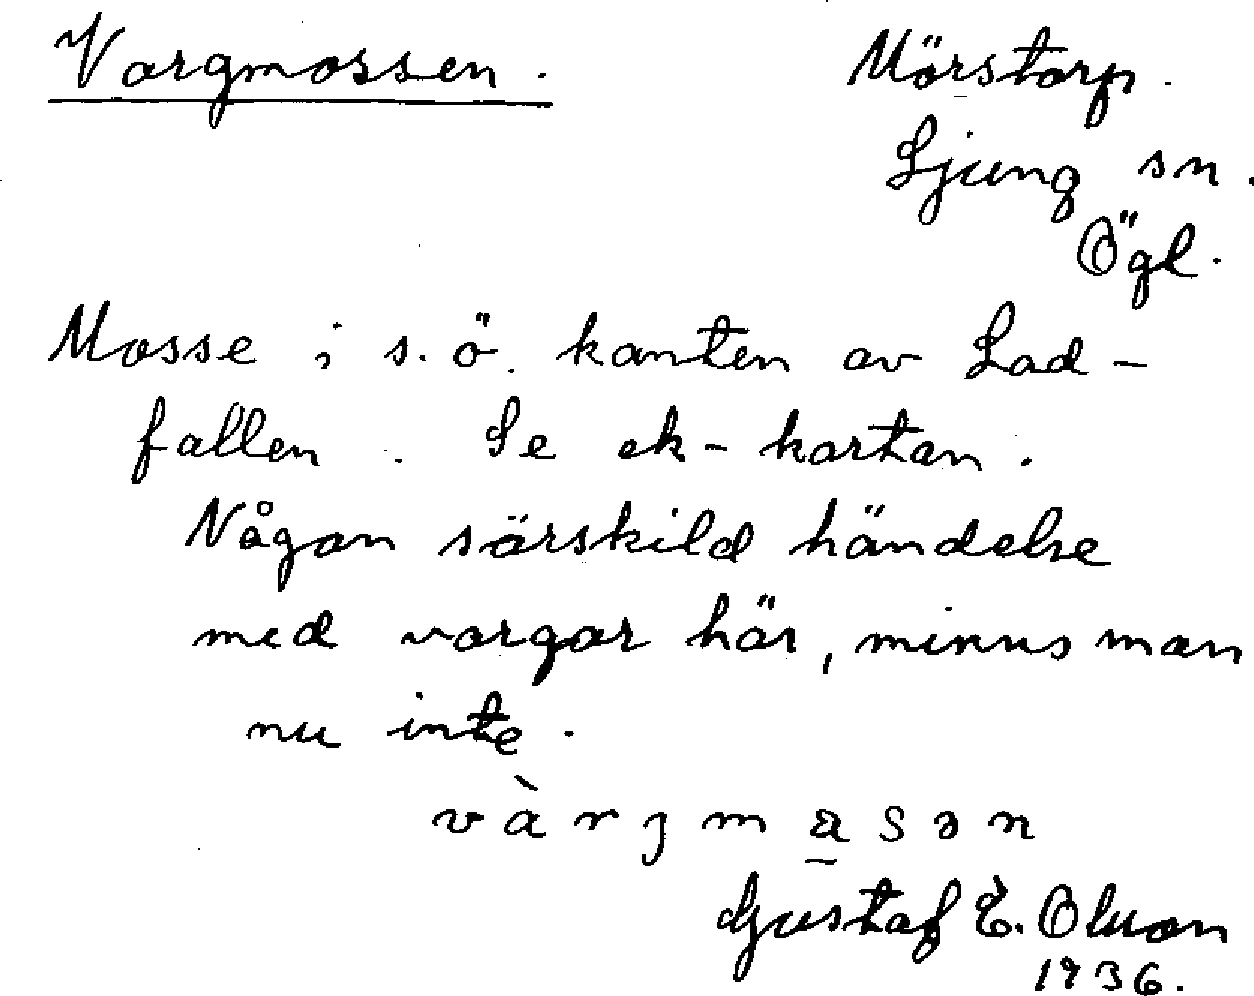 Vargmossen. Mörstorp.
Ljung sn.
Ögl.
Mosse i s.ö. kanten av Lad-
fallen. Se ek-kartan.
Någon särskild händelse
med vargar här, minns man
nu inte.
Gustaf E. Olsson
1936.